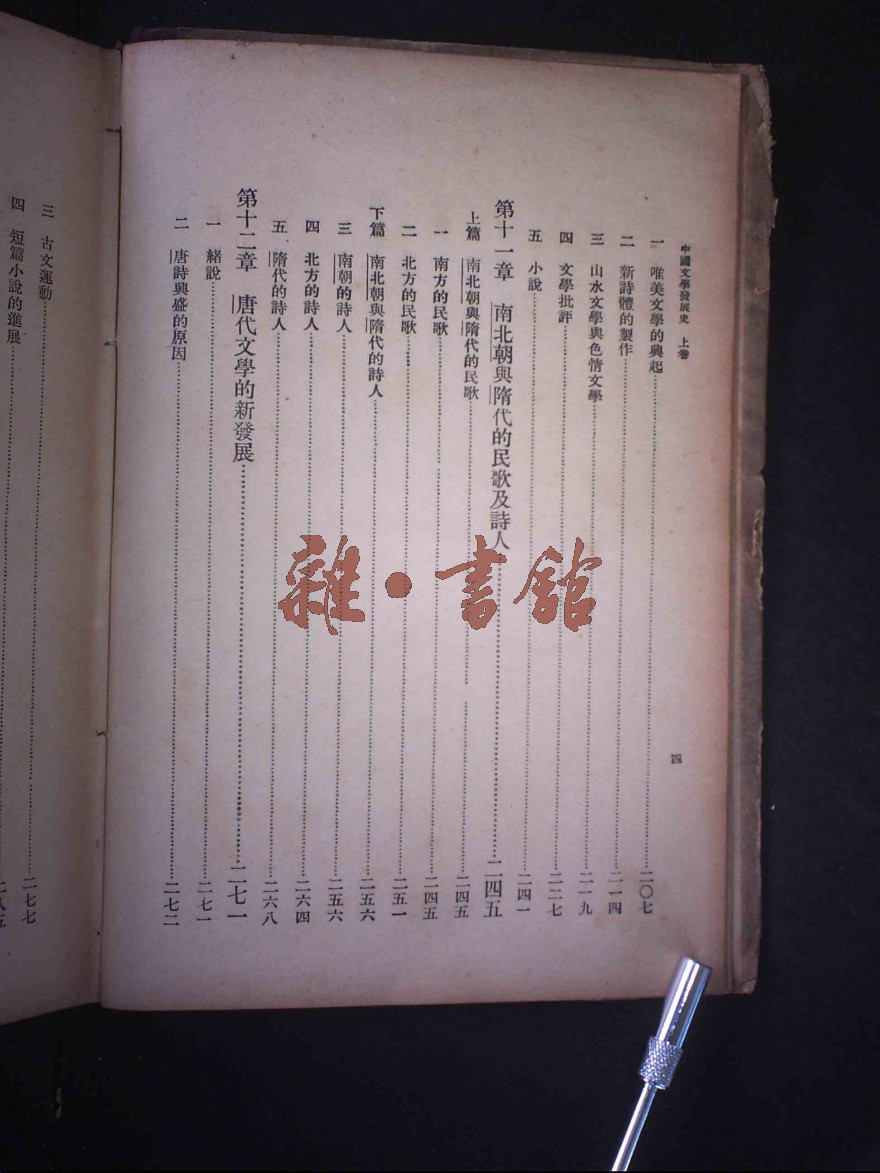 中國文學發展史　上卷
四
一　唯美文學的興起……二〇七
二　新詩體的製作……二一四
三　山水文學與色情文學……二一九
四　文學批評……二二七
五　小說……二四一
第十一章　南北朝與隋代的民歌及詩人……二四五
上篇　南北朝與隋代的民歌……二四五
一　南方的民歌……二四五
二　北方的民歌……二五一
下篇　南北朝與隋代的詩人……二五六
三　南朝的詩人……二五六
四　北方的詩人……二六四
五　隋代的詩人……二六八
第十二章　唐代文學的新發展……二七一
一　緒說……二七一
二　唐詩興盛的原因……二七二
三　古文運動……二七七
四　短篇小說的進展……二八五
雜·書館